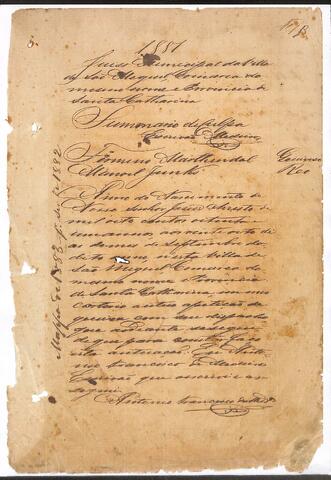 1881
Juizo Municipal da Villa
de São Miguel, Comarca do
mesmo nome e Provincia de
Santa Catharina
Summario de Culpa
Escrivão Medeiros
Firmino
Manoel Reo
Anno do Nascimento de
Nosso Senhor Jesus Christo de
mil oito centos oitenta e
um annos, aos vinte oito di
as do mes de Septembro do
dito anno, nesta villa de
São Miguel Comarca do
mesmo nome e Provincia
de Santa Catharina em meu
cartorio autuo a petição de
queixa com seu despacho
que adiante se segue
do que para constar faço
esta autuação. Eu Anto
nio Francisco de Medeiros
Escrivão que escrevi e as
signei
Antonio Francisco de
Mappa de 1882